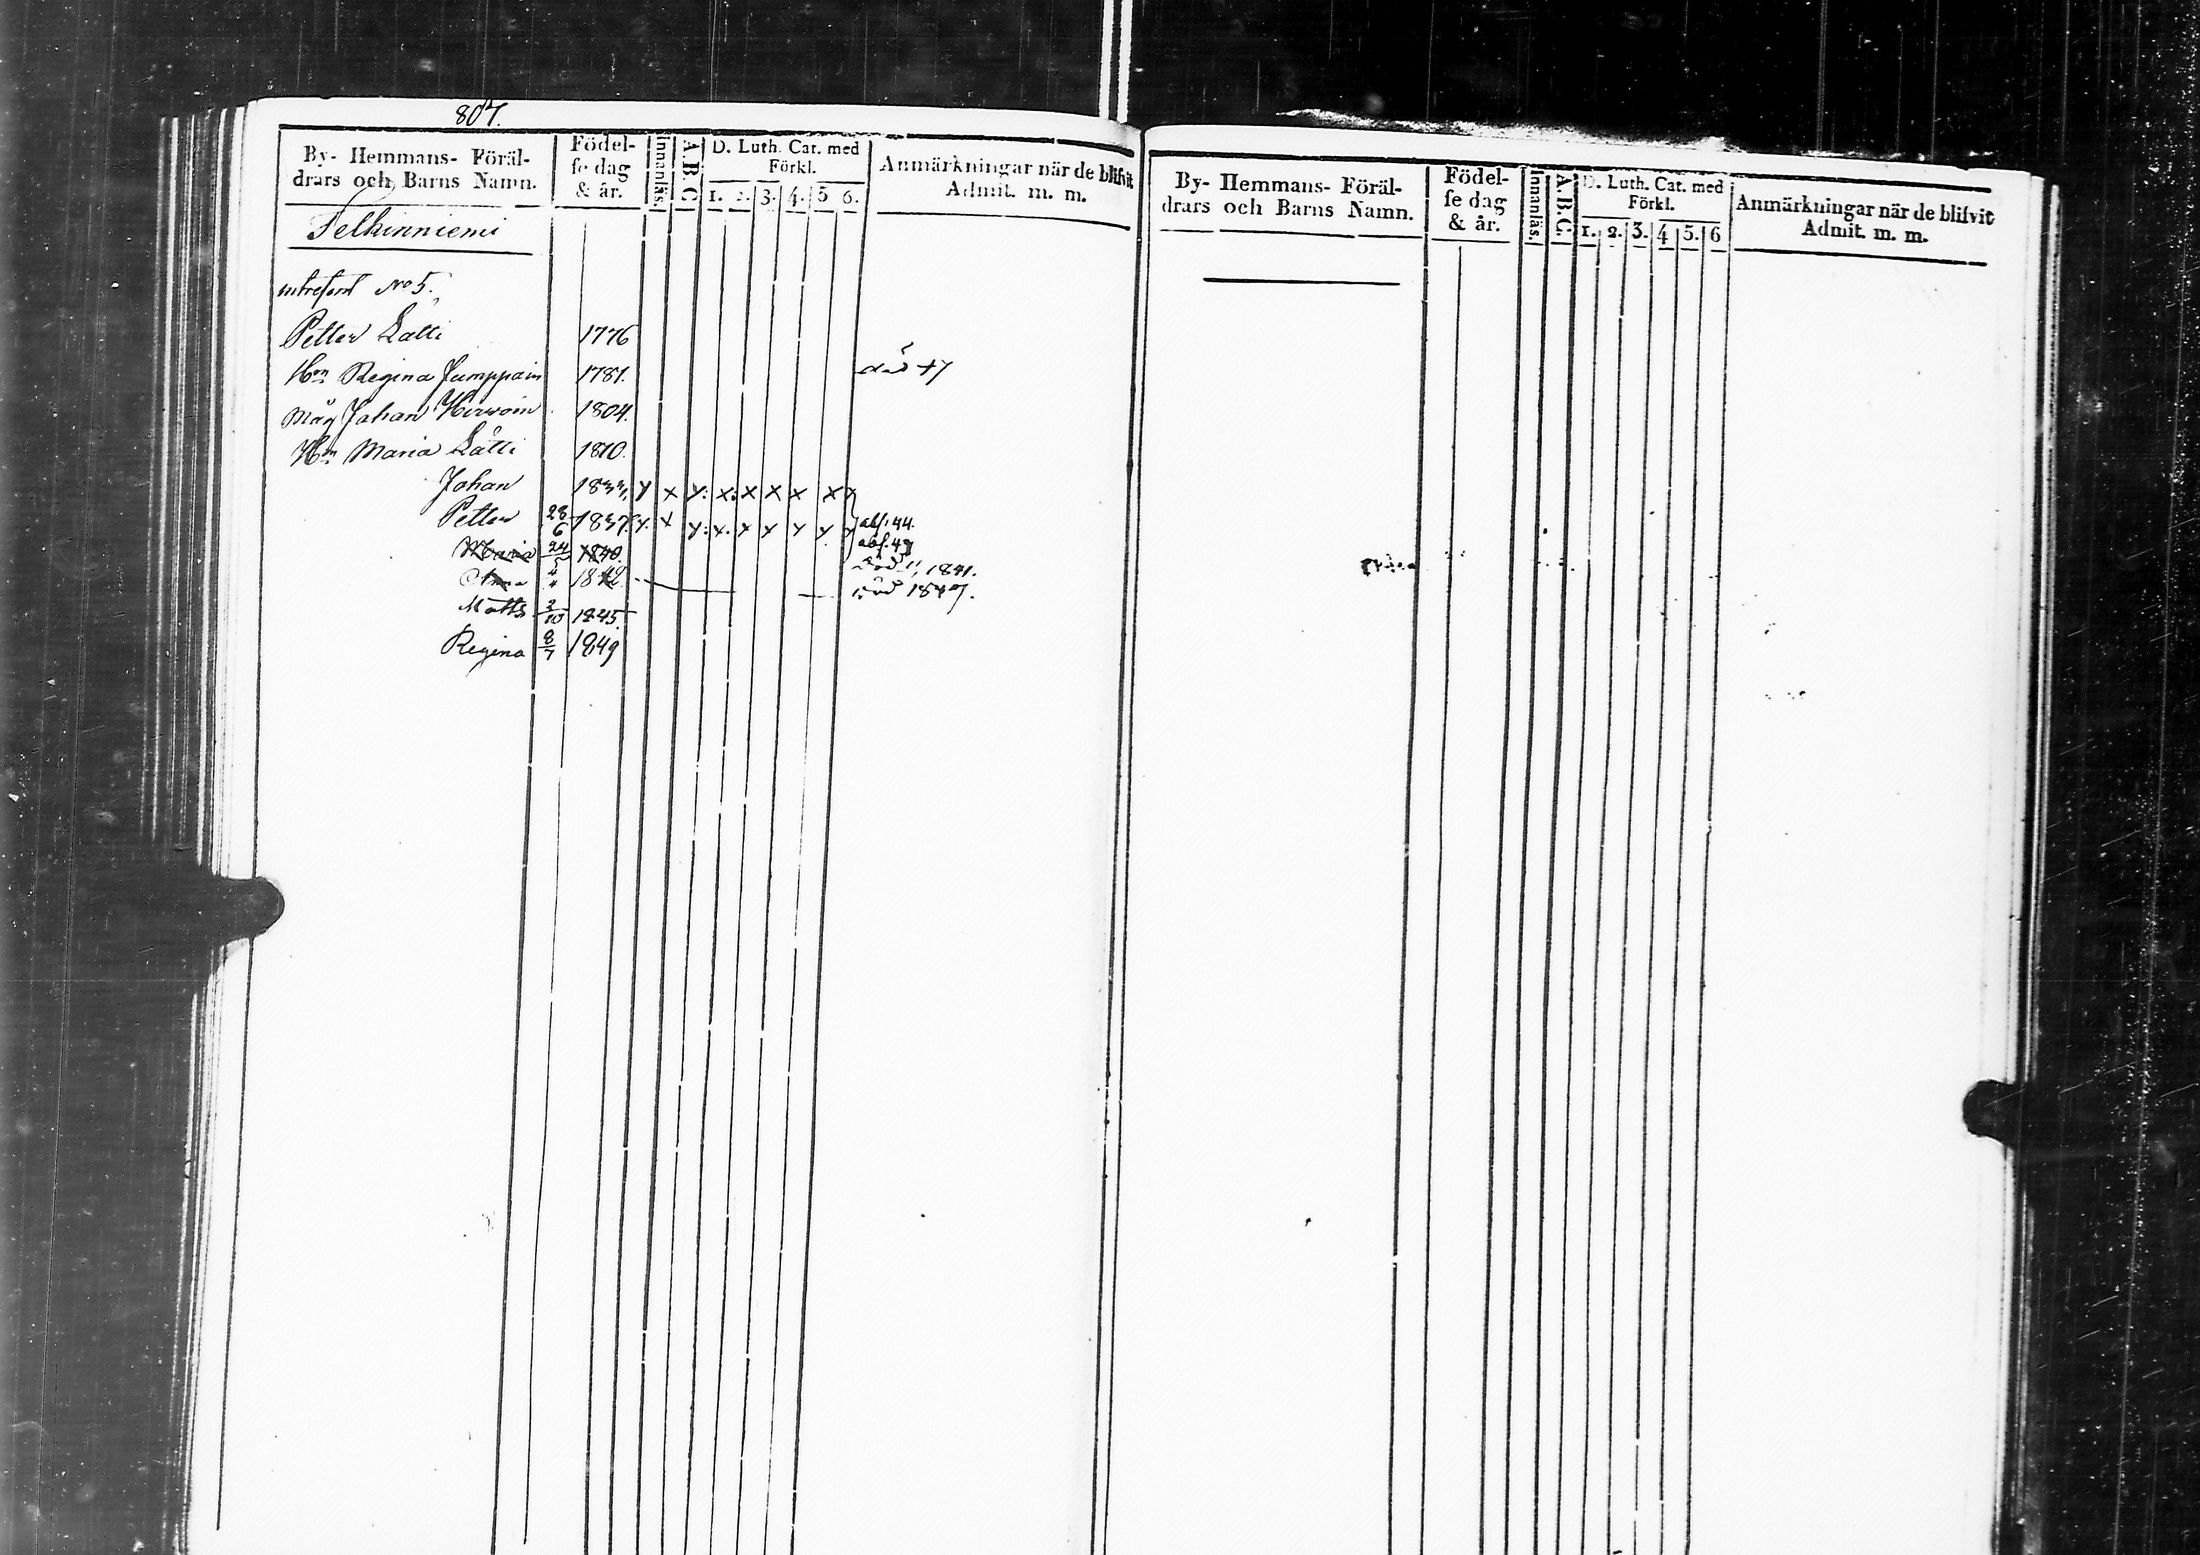 807.
By- Hemmans- Föräl-
drars och Barns Namn.
Födel-
se dag
& år.
Innanläs.
A.B.C
D. Luth. Cat. med
Förkl.
1. 2. 3. 4. 5 6.
Anmärkningar när de blifvit
Admit. m. m.
Selkinniemi
No 5.
Petter Lätti 1776
Hn Regina Jumppain 1781. död 47
Måg Johan Hirvoin 1804.
Hn Maria Lätti 1810.
Johan 1833. y x y: x: x x x x x
Petter 28/6 1837. y. x y: x. x y y y y abs. 44.
abs. 47
Maria 24/5 1840. död 1841.
Anna 4/4 1842. död 1847.
Matts 2/10 1845.
Regina 8/7 1849
By- Hemmans- Föräl-
drars och Barns Namn.
Födel-
se dag
& år.
Innanläs.
A.B.C.
D. Luth. Cat. med
Förkl.
1. 2. 3. 4 5. 6
Anmärkningar när de blifvit
Admit. m. m.